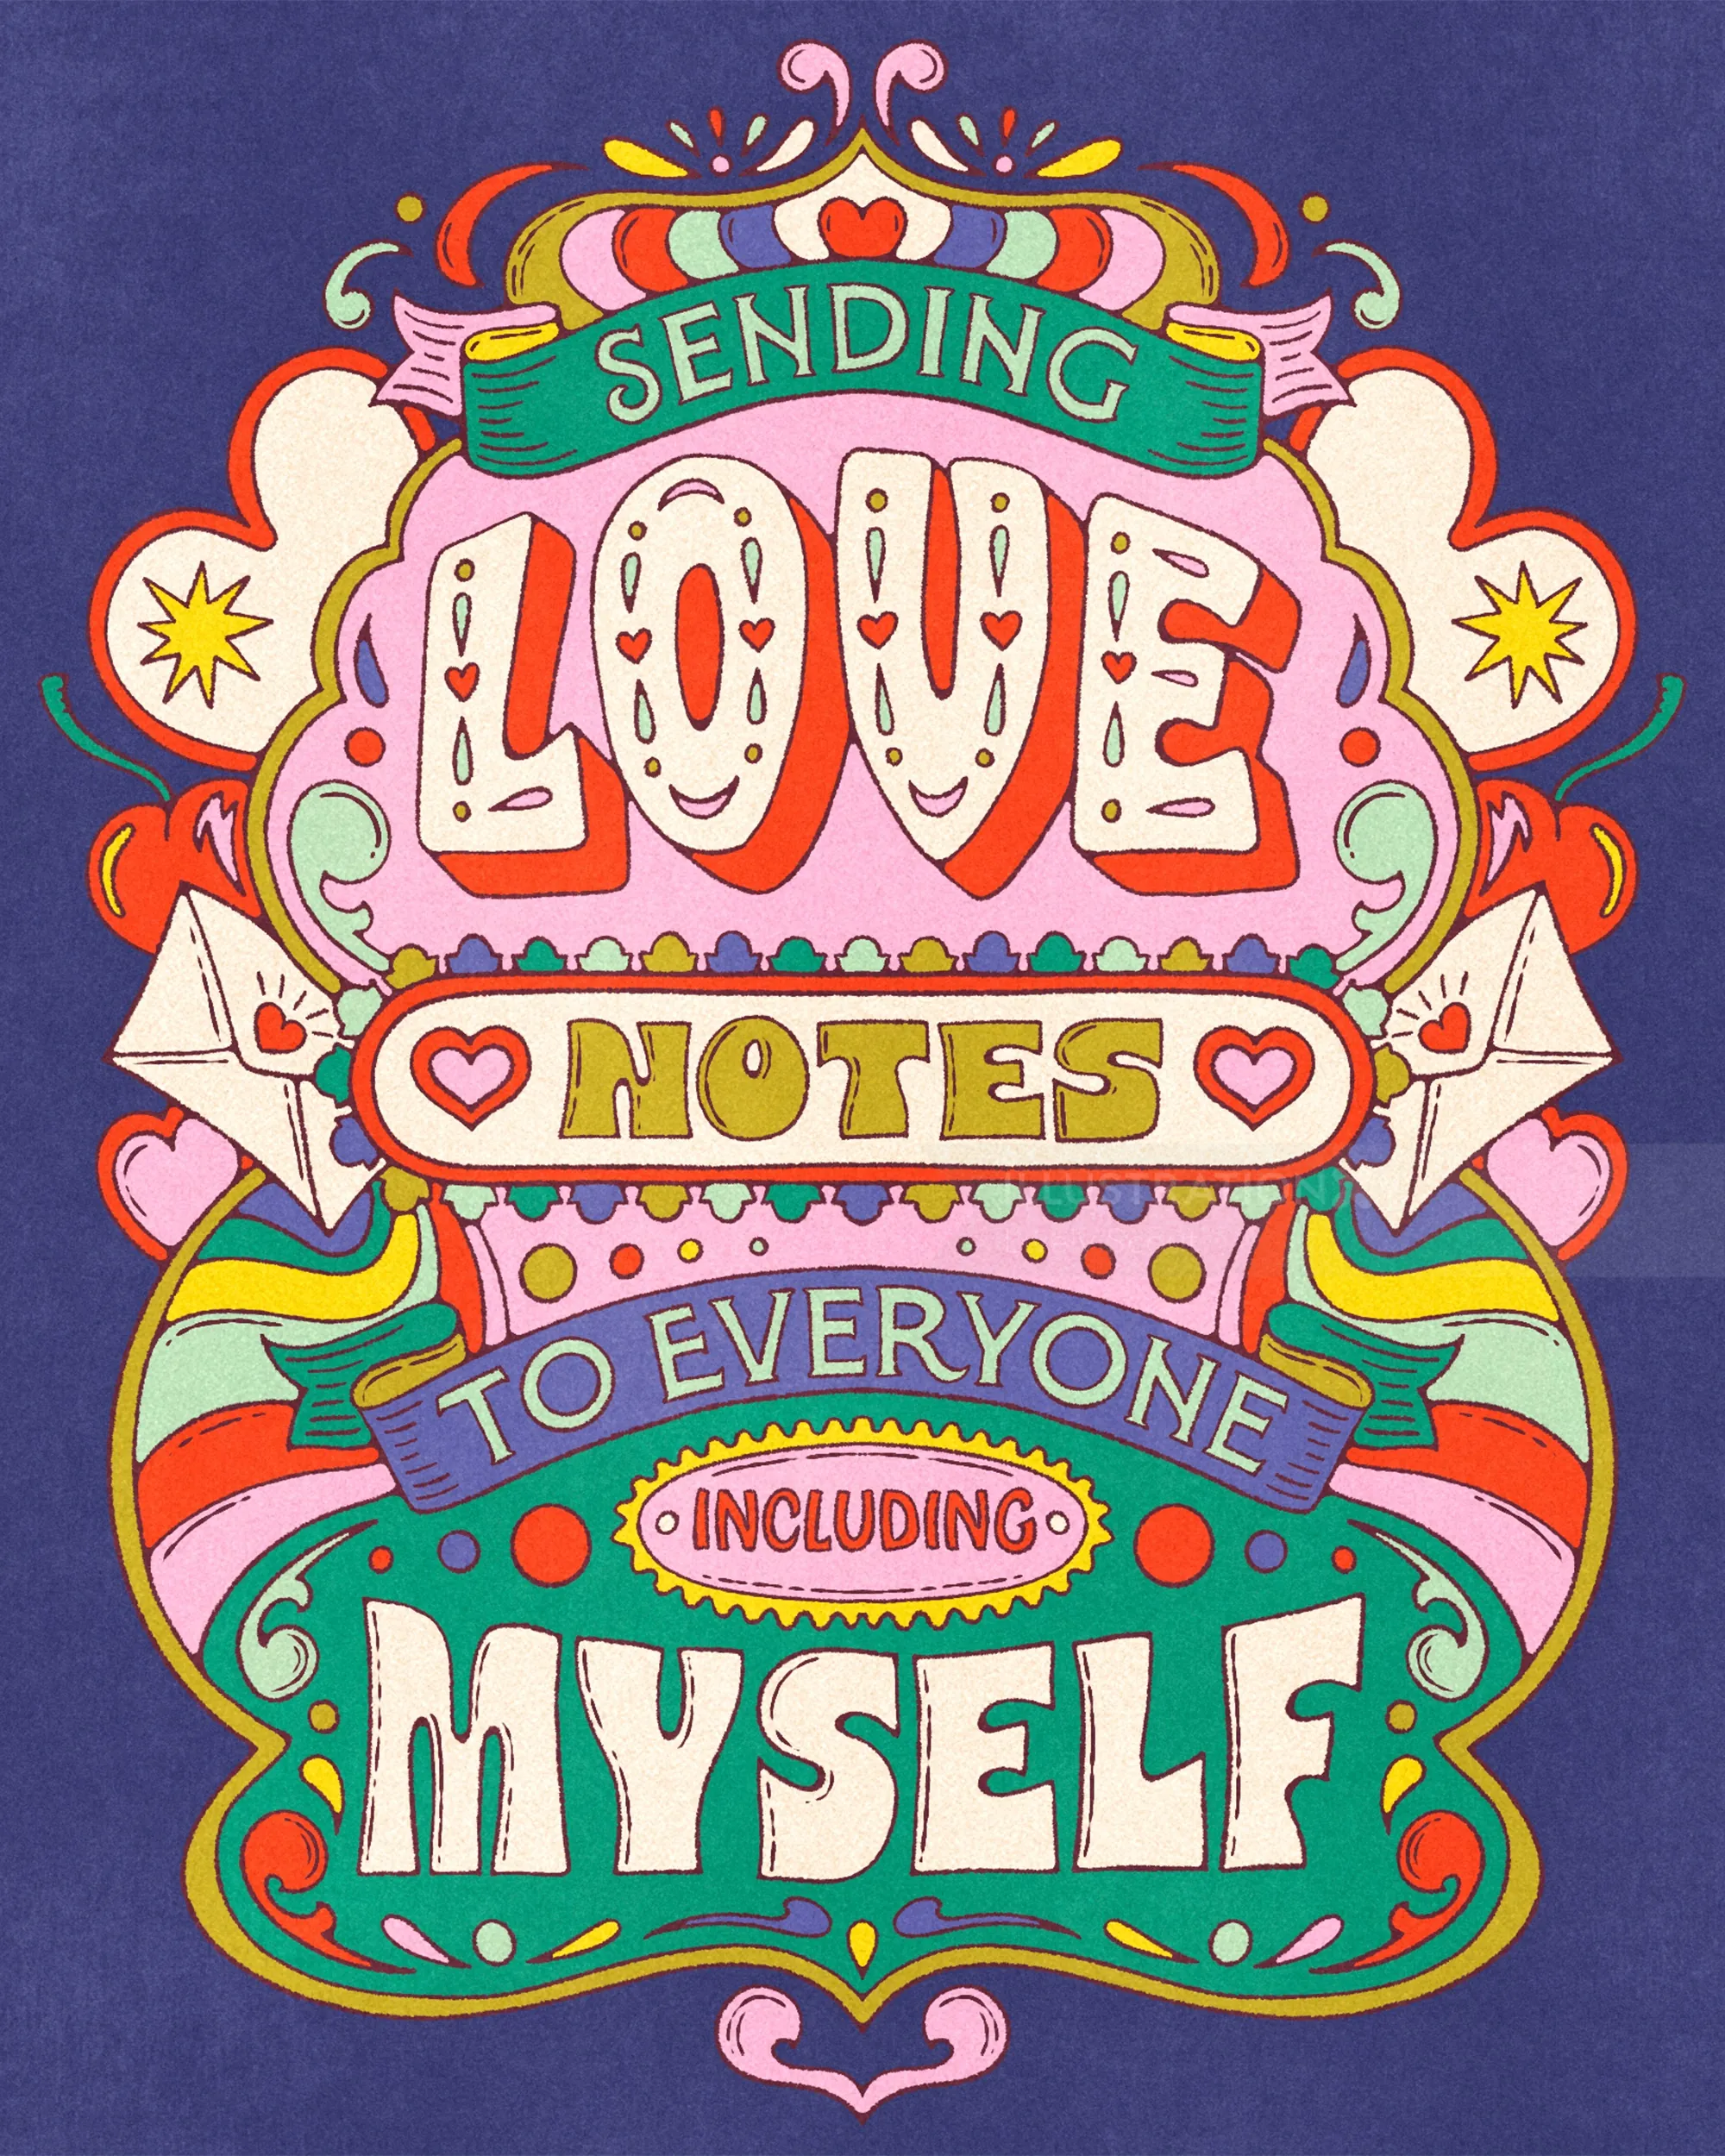 SENDING
LOVE
NOTES
ILLUSTRATION
TO EVERYONE
INCLUDING
MYSELF